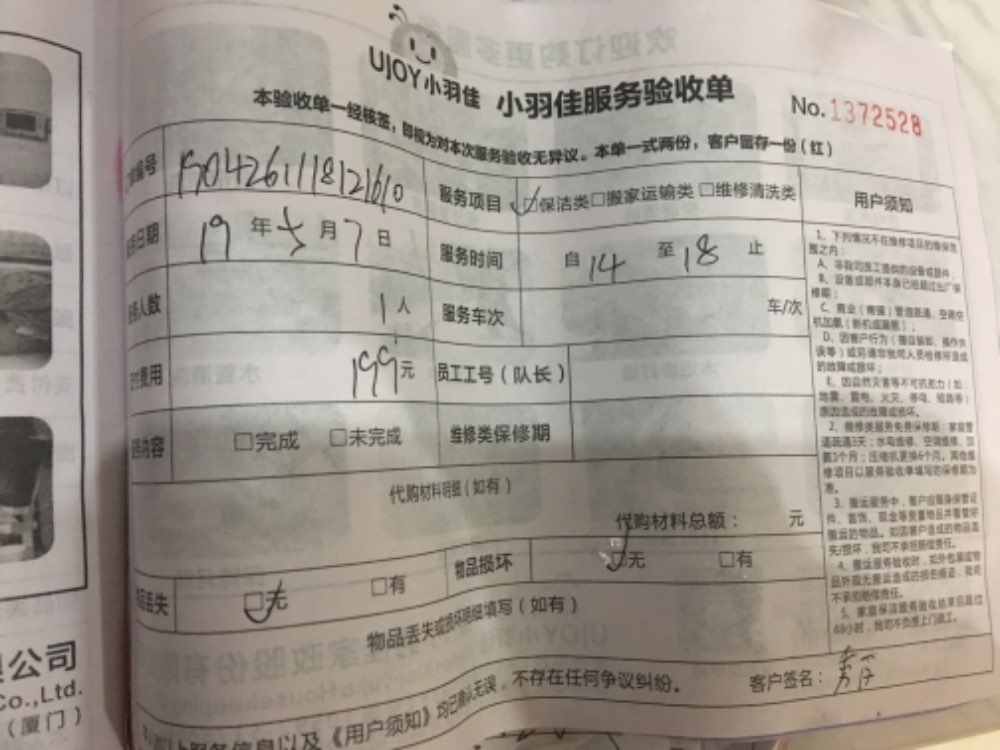 UJOY小羽佳 小羽佳服务验收单
No.1372528
本验收单一经核签，即视为对本次服务验收无异议。本单一式两份，客户留存一份（红）
编号 服务项目 □保洁类□搬家运输类□维修清洗类 用户须知
日期 19年5月7日 服务时间 自14至18止
人数 1人 服务车次 车/次
费用 199元 员工工号（队长）
内容 □完成 □未完成 维修类保修期
代购材料明细（如有）
代购材料总额： 元
丢失 □无 □有 物品损坏 □无 □有
物品丢失或损坏明细填写（如有）
服务信息以及《用户须知》均已确认无误，不存在任何争议纠纷。 客户签名：
1、下列情况不在维修项目的维保范围之内：
A、非我司员工提供的设备或部件；
B、设备或部件本身已经超过出厂保修期；
C、商业（商铺）管道疏通、空调空机加氨（新机或漏氨）；
D、因客户行为（擅自装卸、操作失误等）或另请非我司人员检修所造成的故障或损坏；
E、因自然灾害等不可抗能力（如：地震、雷电、火灾、停电、短路等）原因造成的故障或损坏。
2、维修类服务免费保修期：家庭管道疏通3天；水电维修、空调维修、加氨1个月；压缩机更换6个月。其他维修项目以服务验收单填写的保修期为准。
3、搬运服务中，客户应随身保管证件、首饰、现金等贵重物品并看管好搬运的物品。如因客户造成的物品丢失/损坏，我司不承担赔偿责任。
4、搬运服务验收时，如外包装或物品外观无搬运造成的损伤痕迹，我司不承担赔偿责任。
5、家庭保洁服务验收结束后超过48小时，我司不负责上门返工。
公司
Co.,Ltd.
（厦门）